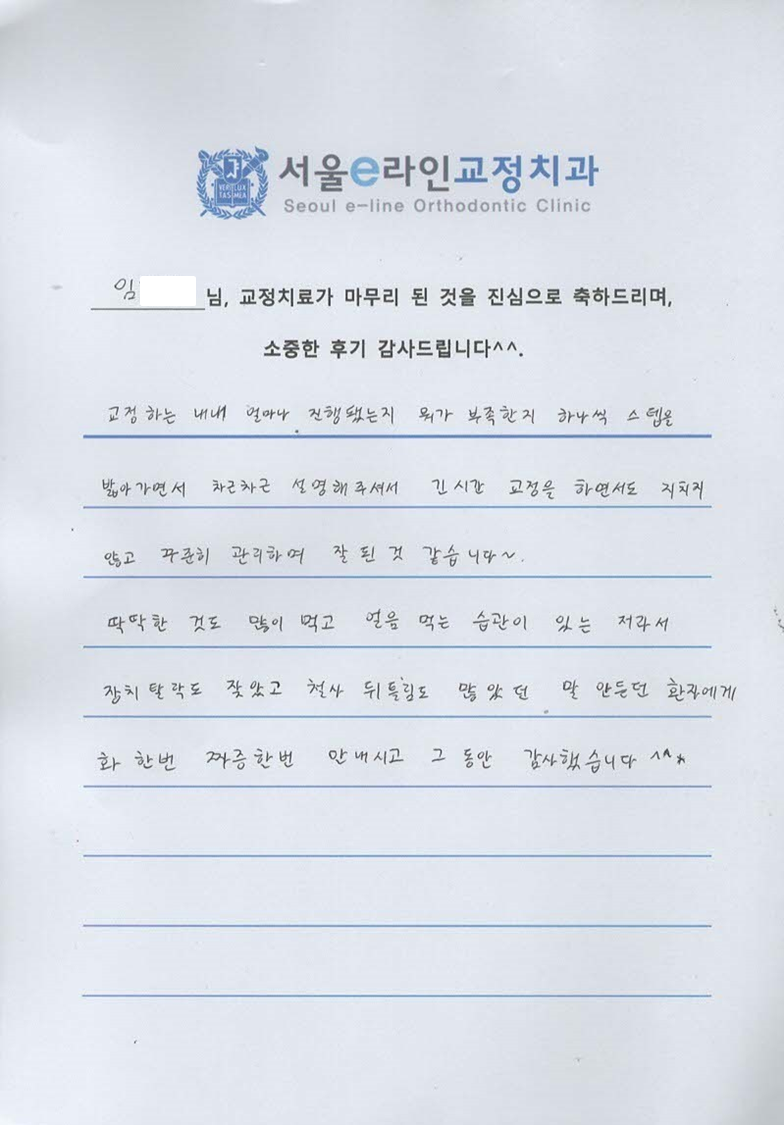 서울e라인교정치과
Seoul e-line Orthodontic Clinic
VERI LUX TAS MEA
임 님, 교정치료가 마무리 된 것을 진심으로 축하드리며,
소중한 후기 감사드립니다^^.
교정하는 내내 얼마나 진행됐는지 뭐가 부족한지 하나씩 스텝을
밟아가면서 차근차근 설명해주셔서 긴 시간 교정을 하면서도 지치지
않고 꾸준히 관리하며 잘 된 것 같습니다~.
딱딱한 것도 많이 먹고 얼음 먹는 습관이 있는 저라서
장치 탈락도 잦았고 철사 뒤틀림도 많았던 말 안듣던 환자에게
화 한번 짜증한번 안내시고 그 동안 감사했습니다 ^^*